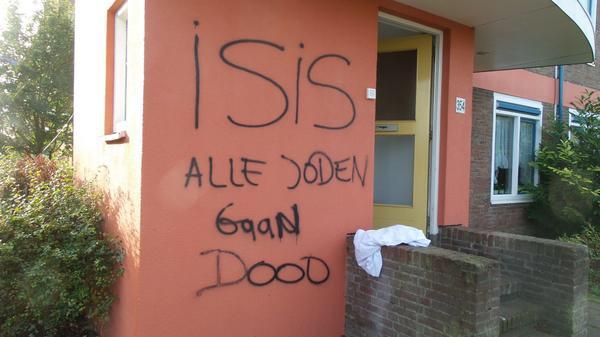 iSiS
ALLE JODEN
GaaN
DOOD
354